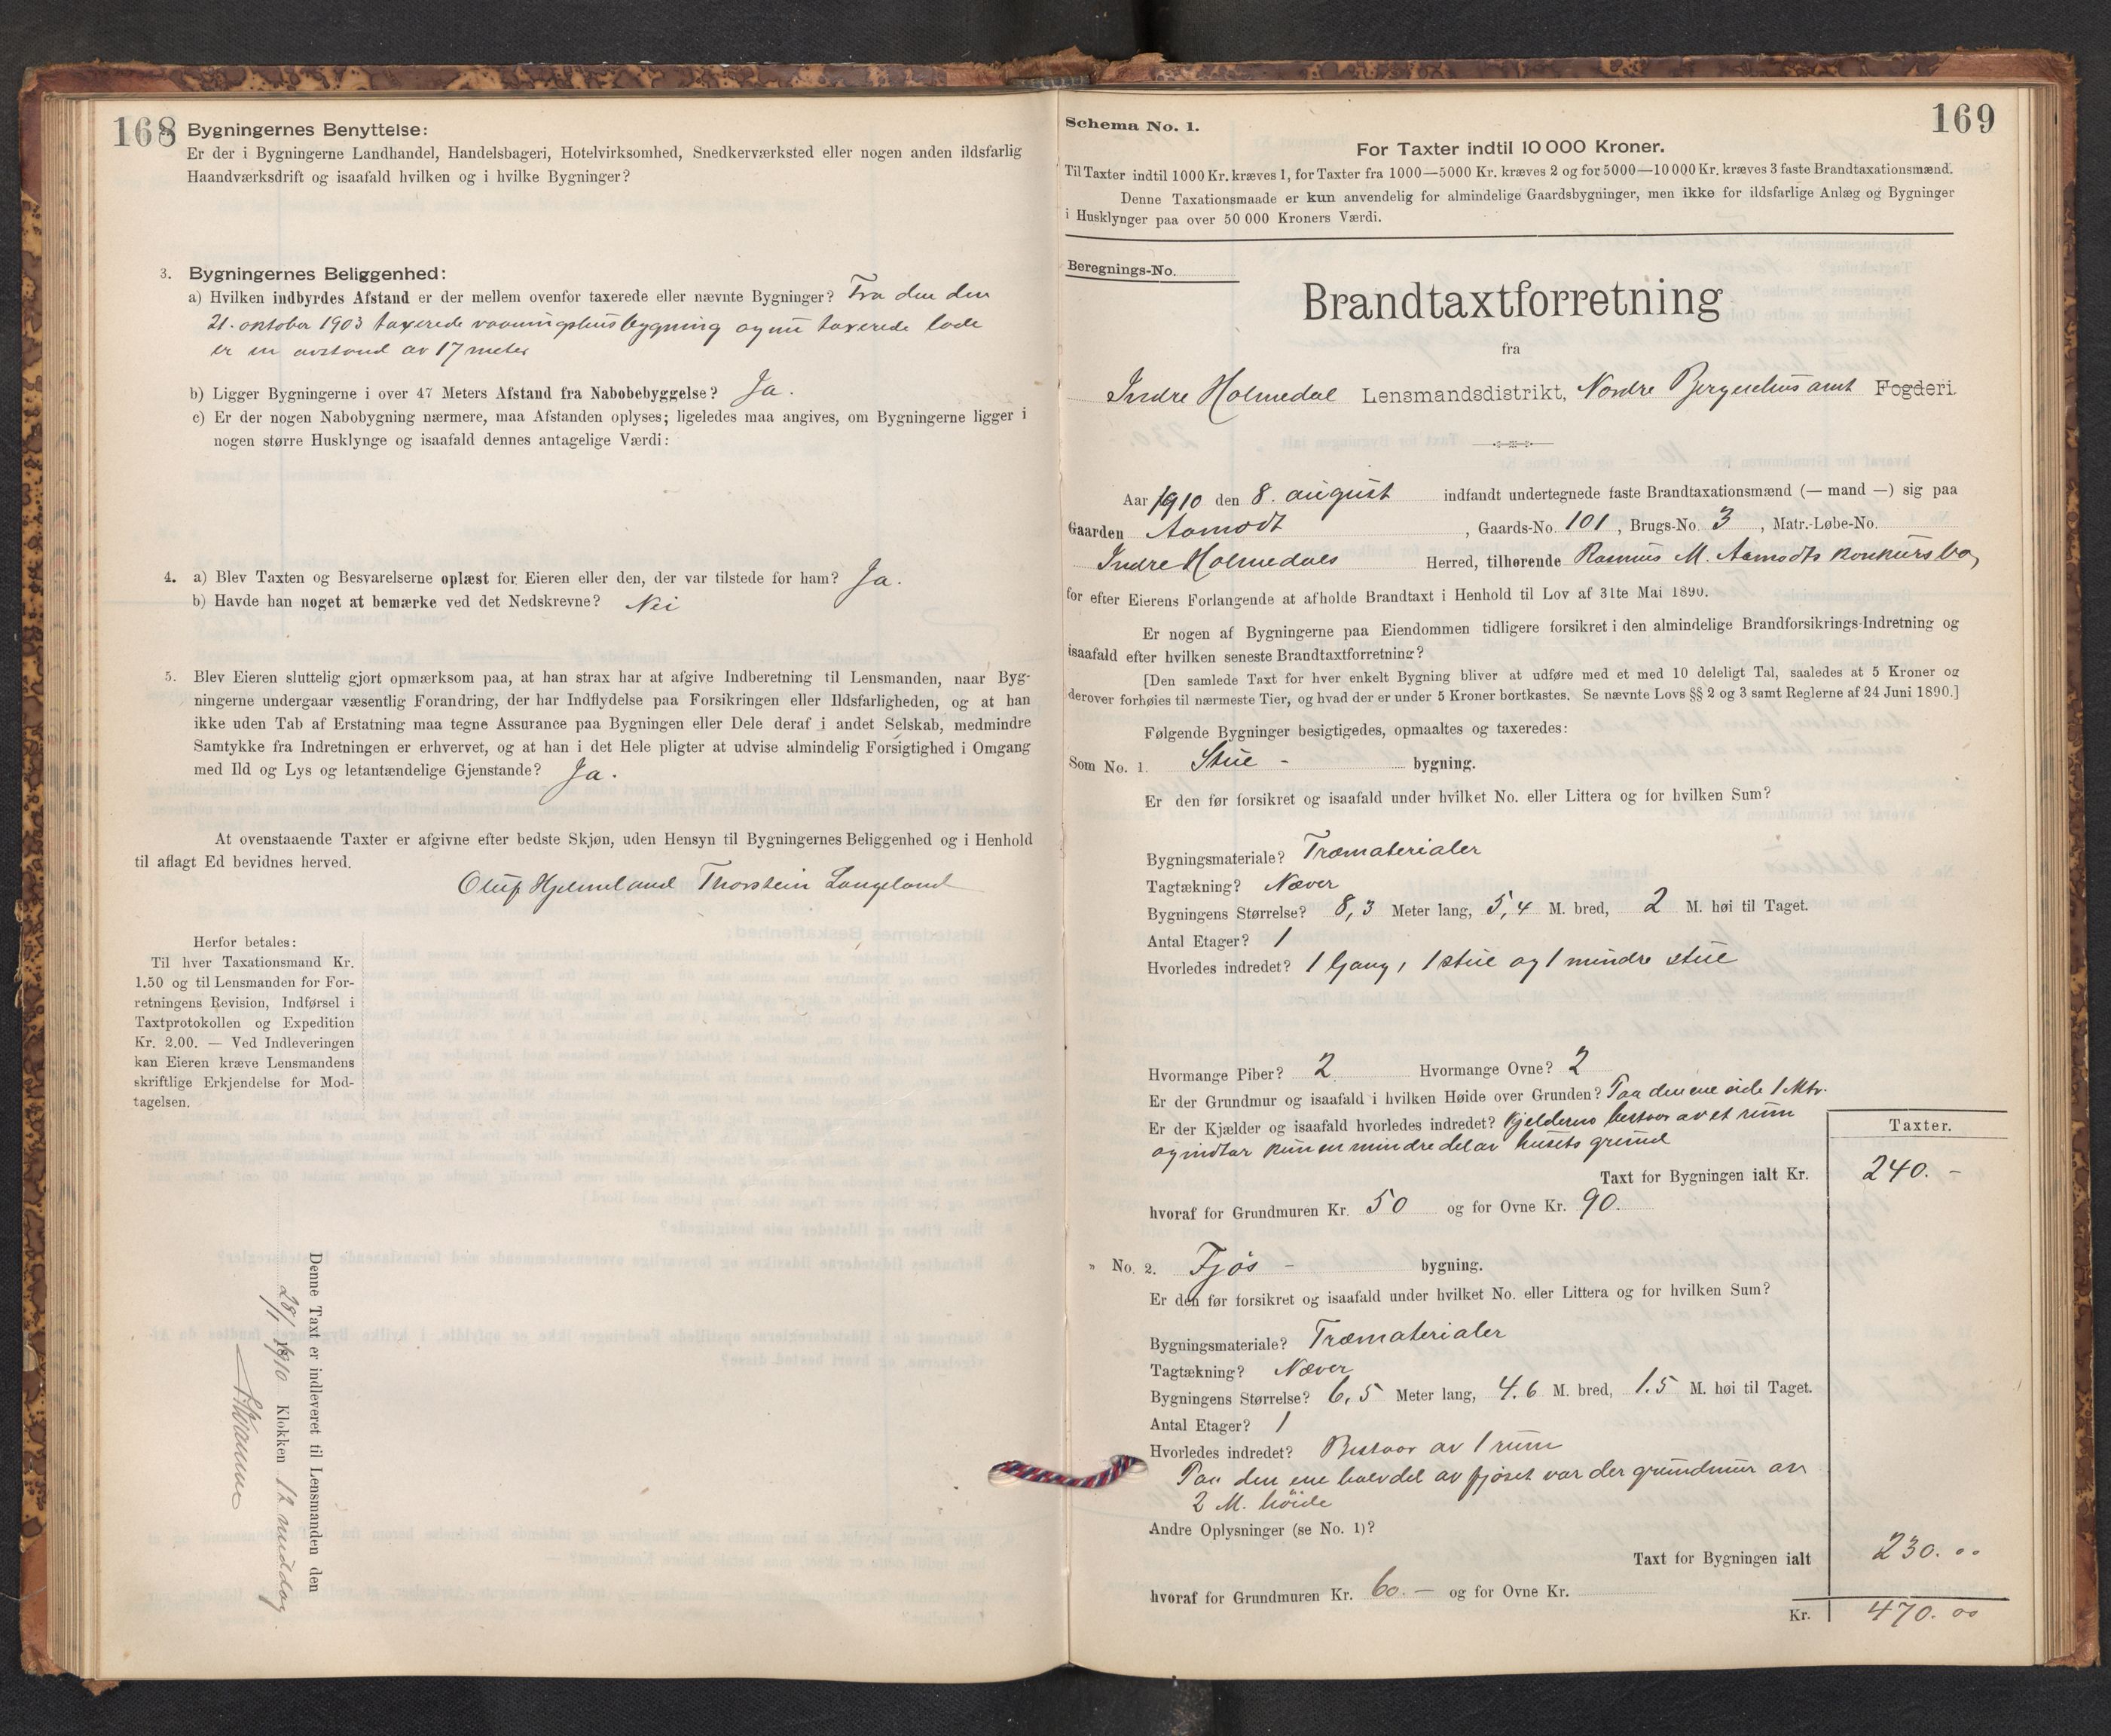 168
Bygningernes Benyttelse:
Er der i Bygningerne Landhandel, Handelsbageri, Hotelvirksomhed, Snedkerværksted eller nogen anden ildsfarlig
Haandværksdrift og isaafald hvilken og i hvilke Bygninger?
3. Bygningernes Beliggenhed:
a) Hvilken indbyrdes Afstand er der mellem ovenfor taxerede eller nævnte Bygninger? Fra den den
21. oktober 1903 taxerede vaaningshusbygning og nu taxerede lade
er en avstand av 17 meter
b) Ligger Bygningerne i over 47 Meters Afstand fra Nabobebyggelse? Ja.
c) Er der nogen Nabobygning nærmere, maa Afstanden oplyses; ligeledes maa angives, om Bygningerne ligger i
nogen større Husklynge og isaafald dennes antagelige Værdi:
4. a) Blev Taxten og Besvarelserne oplæst for Eieren eller den, der var tilstede for ham? Ja.
b) Havde han noget at bemærke ved det Nedskrevne? Nei
5. Blev Eieren sluttelig gjort opmærksom paa, at han strax har at afgive Indberetning til Lensmanden, naar Byg-
ningerne undergaar væsentlig Forandring, der har Indflydelse paa Forsikringen eller Ildsfarligheden, og at han
ikke uden Tab af Erstatning maa tegne Assurance paa Bygningen eller Dele deraf i andet Selskab, medmindre
Samtykke fra Indretningen er erhvervet, og at han i det Hele pligter at udvise almindelig Forsigtighed i Omgang
med Ild og Lys og letantændelige Gjenstande? Ja.
At ovenstaaende Taxter er afgivne efter bedste Skjøn, uden Hensyn til Bygningernes Beliggenhed og i Henhold
til aflagt Ed bevidnes herved.
Oluf Hjelmeland Thorstein Langeland
Herfor betales:
Til hver Taxationsmand Kr.
1.50 og til Lensmanden for For-
retningens Revision, Indførsel i
Taxtprotokollen og Expedition
Kr. 2.00. — Ved Indleveringen
kan Eieren kræve Lensmandens
skriftlige Erkjendelse for Mod-
tagelsen.
Denne Taxt er indleveret til Lensmanden den
28/1 1910 Klokken 12 middag
169
Schema No. 1.
For Taxter indtil 10 000 Kroner.
Til Taxter indtil 1000 Kr. kræves 1, for Taxter fra 1000—5000 Kr. kræves 2 og for 5000—10 000 Kr. kræves 3 faste Brandtaxationsmænd.
Denne Taxationsmaade er kun anvendelig for almindelige Gaardsbygninger, men ikke for ildsfarlige Anlæg og Bygninger
i Husklynger paa over 50 000 Kroners Værdi.
Beregnings-No.
Brandtaxtforretning
fra
Indre Holmedal Lensmandsdistrikt, Nordre Bergenhus amt Fogderi.
Aar 1910 den 8. august indfandt undertegnede faste Brandtaxationsmænd (— mand —) sig paa
Gaarden Aamodt, Gaards-No. 101, Brugs-No. 3, Matr.-Løbe-No.
Indre Holmedals Herred, tilhørende Rasmus M. Aamodts konkursbo,
for efter Eierens Forlangende at afholde Brandtaxt i Henhold til Lov af 31te Mai 1890.
Er nogen af Bygningerne paa Eiendommen tidligere forsikret i den almindelige Brandforsikrings-Indretning og
isaafald efter hvilken seneste Brandtaxtforretning?
[Den samlede Taxt for hver enkelt Bygning bliver at udføre med et med 10 deleligt Tal, saaledes at 5 Kroner og
derover forhøies til nærmeste Tier, og hvad der er under 5 Kroner bortkastes. Se nævnte Lovs §§ 2 og 3 samt Reglerne af 24 Juni 1890.]
Følgende Bygninger besigtigedes, opmaaltes og taxeredes:
Som No. 1. Stue - bygning.
Er den før forsikret og isaafald under hvilket No. eller Littera og for hvilken Sum?
Bygningsmateriale? Træmaterialer
Tagtækning? Næver
Bygningens Størrelse? 8,3 Meter lang, 5,4 M. bred, 2 M. høi til Taget.
Antal Etager? 1
Hvorledes indredet? 1 Gang, 1 stue og 1 mindre stue
Hvormange Piber? 2 Hvormange Ovne? 2
Er der Grundmur og isaafald i hvilken Høide over Grunden? Paa den ene side 1 Mtr.
Er der Kjælder og isaafald hvorledes indredet? Kjelderen bestaar av et rum
og indtar kun en mindre del av husets grund
Taxter.
Taxt for Bygningen ialt Kr. 240. -
hvoraf for Grundmuren Kr. 50 og for Ovne Kr. 90.
" No. 2. Fjøs - bygning.
Er den før forsikret og isaafald under hvilket No. eller Littera og for hvilken Sum?
Bygningsmateriale? Træmaterialer
Tagtækning? Næver
Bygningens Størrelse? 6,5 Meter lang, 4.6 M. bred, 1.5 M. høi til Taget.
Antal Etager? 1
Hvorledes indredet? Bestaar av 1 rum
Paa den ene halvdel av fjøset var der grundmur av
2 M. høide
Andre Oplysninger (se No. 1)?
Taxt for Bygningen ialt 230. 00
hvoraf for Grundmuren Kr. 60. — og for Ovne Kr.
Kr. 470. 00